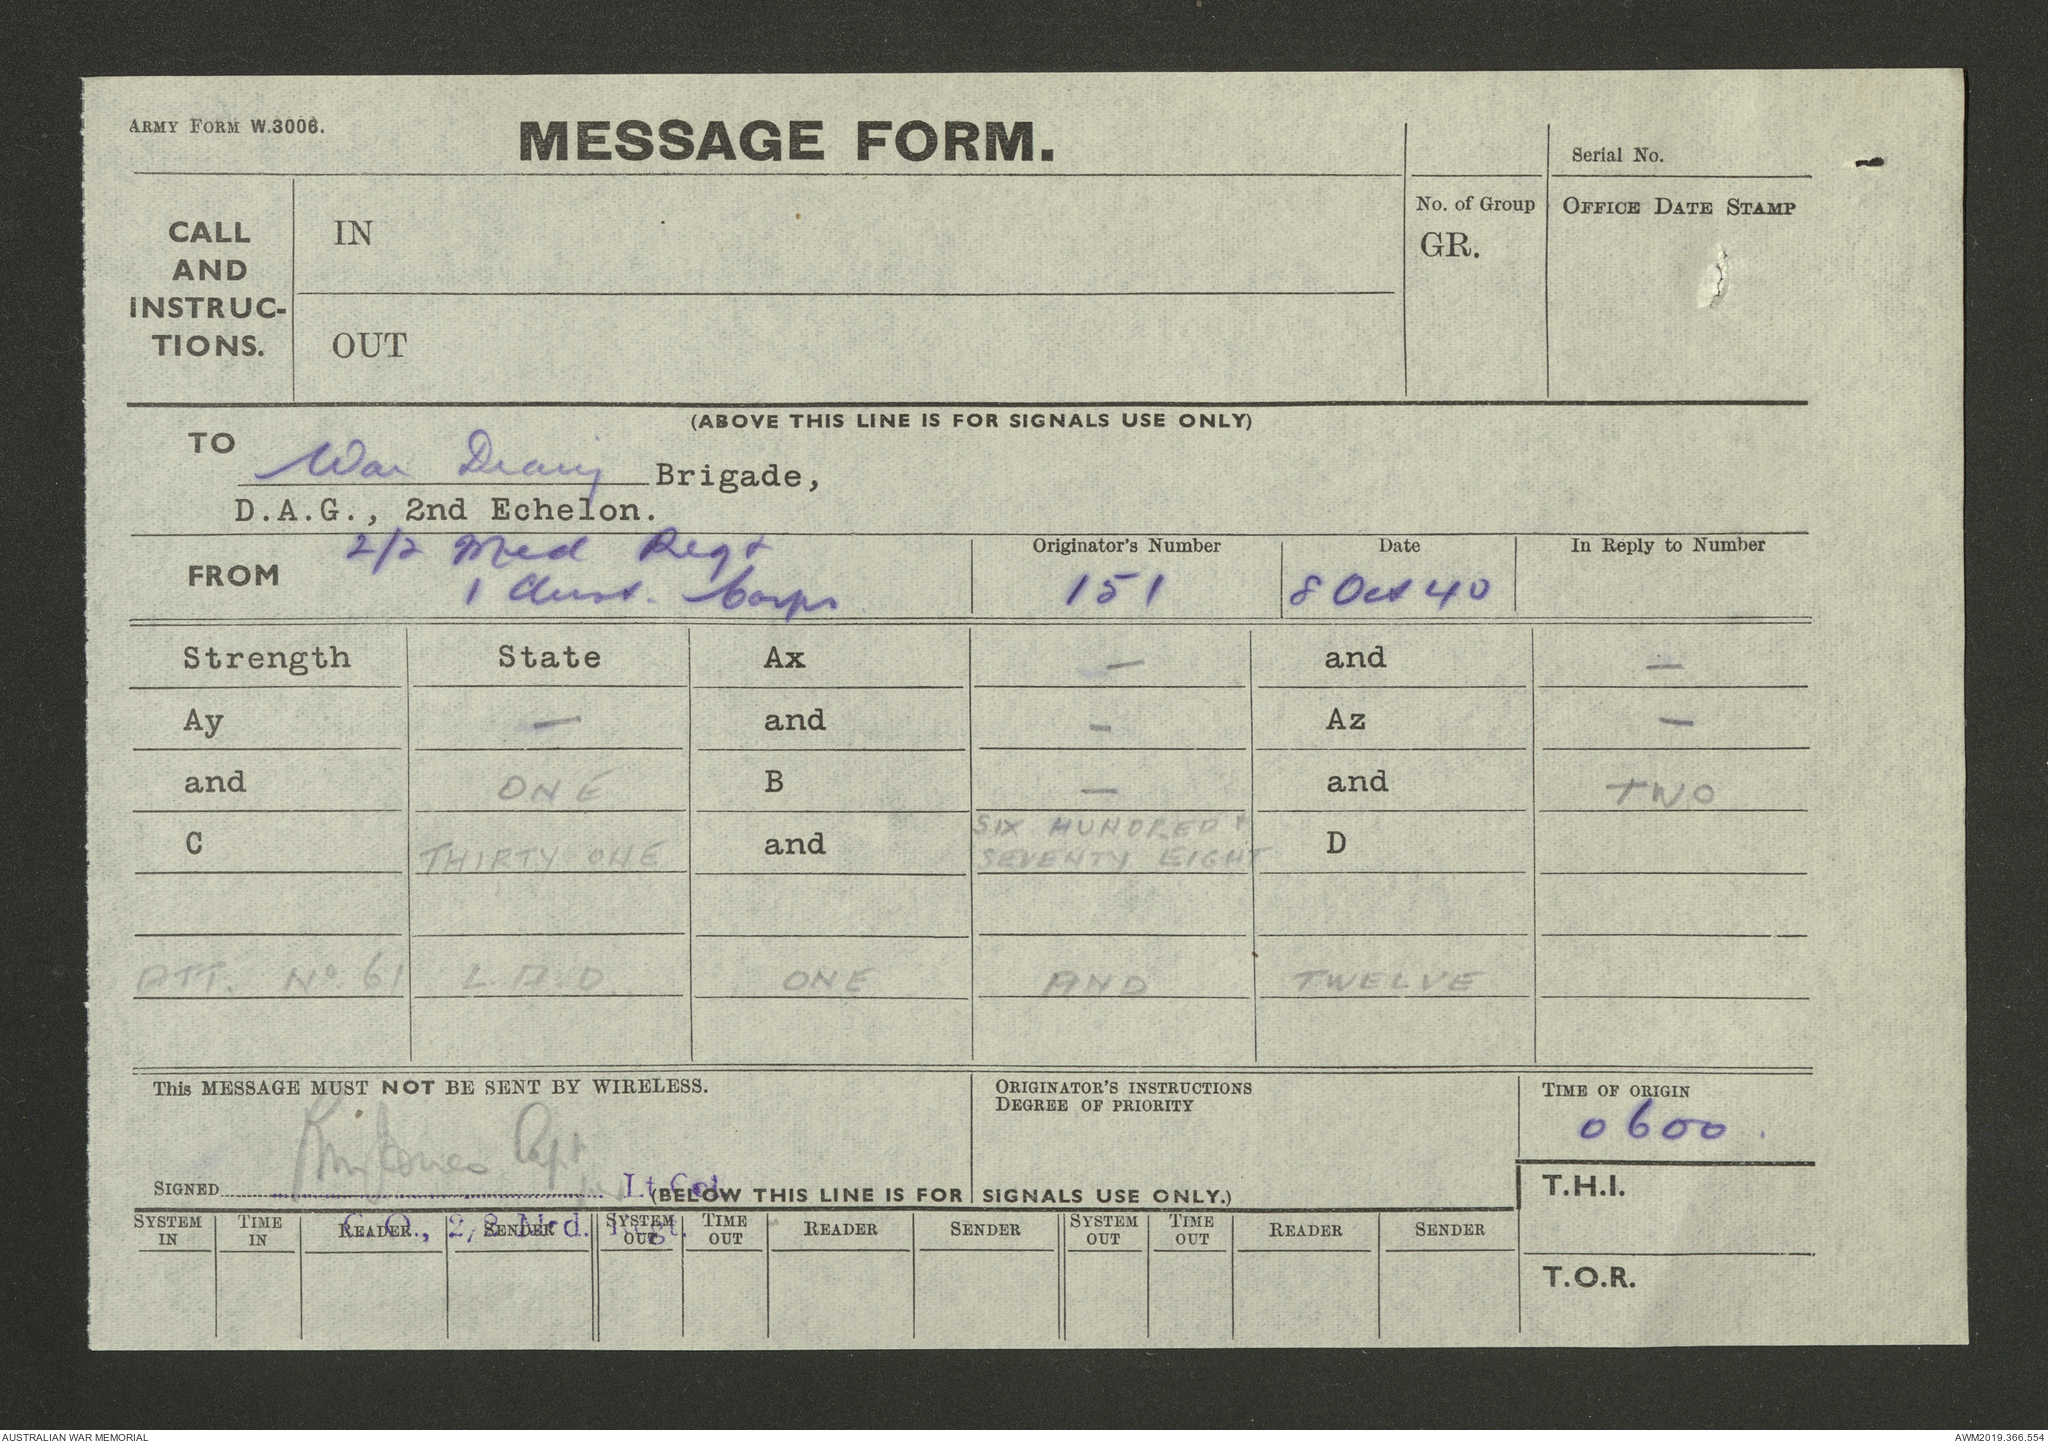 ARMY FORM W.3006.
MESSAGE FORM.
Serial No.
CALL
AND
INSTRUC-
TIONS.
IN
OUT
No. of Group
GR.
OFFICE DATE STAMP
(ABOVE THIS LINE IS FOR SIGNALS USE ONLY)
TO
War Diary Brigade,
D.A.G., 2nd Echelon.
FROM
2/2 Med Regt
1 Aust. Corps
Originator's Number
151
Date
8 Oct 40
In Reply to Number
Strength State Ax — and —
Ay — and — Az —
and ONE B — and TWO
C THIRTY ONE and SIX HUNDRED + D
SEVENTY EIGHT
ATT. No. 61 L.A.D. ONE AND TWELVE
This MESSAGE MUST NOT BE SENT BY WIRELESS.
ORIGINATOR'S INSTRUCTIONS
DEGREE OF PRIORITY
TIME OF ORIGIN
0600.
Capt
SIGNED Lt Col.
(BELOW THIS LINE IS FOR SIGNALS USE ONLY.)
C.O., 2/2 Med. Regt.
T.H.I.
SYSTEM IN TIME IN READER SENDER SYSTEM OUT TIME OUT READER SENDER SYSTEM OUT TIME OUT READER SENDER
T.O.R.
AUSTRALIAN WAR MEMORIAL
AWM2019.366.554